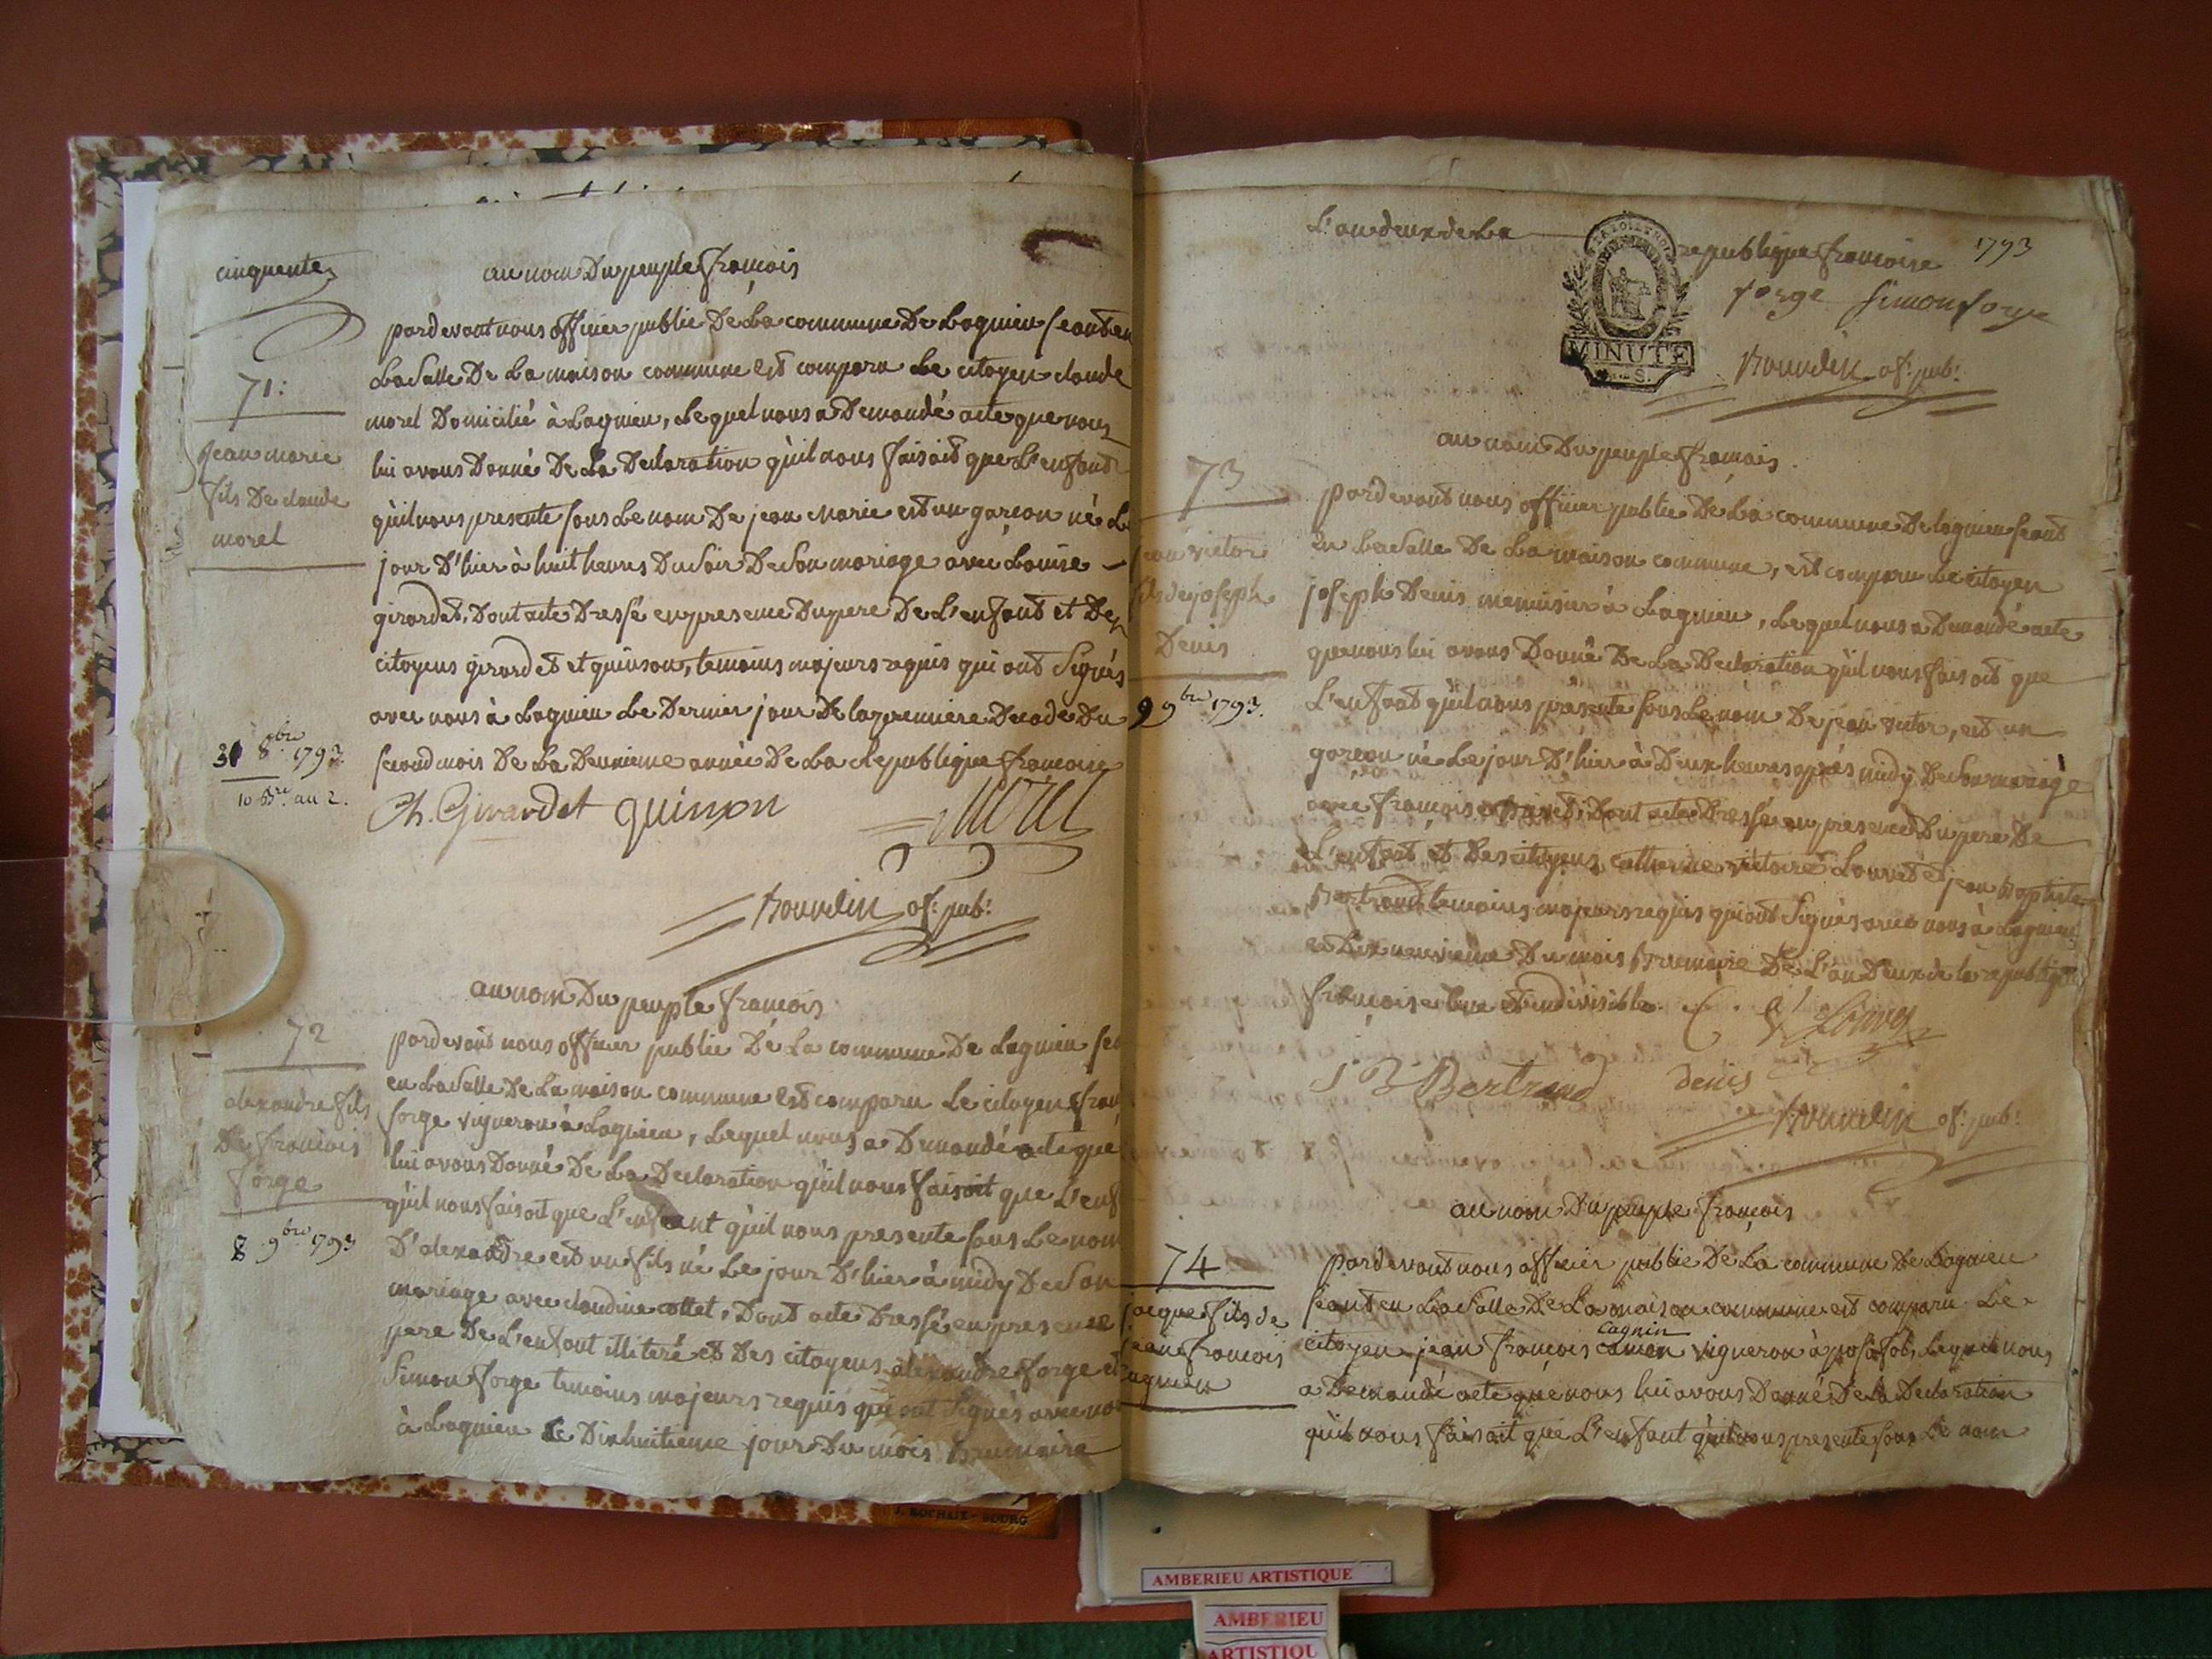 cinquente
au nom Du peuple françois
71:
jean marie
fils De claude
morel
31 8bre 1793.
10 Bre. an 2.
pardevant nous officier public De La commune De Lagnieu seant en
La Salle De La maison commune est comparu Le citoyen claude
morel Domicilié à Lagnieu, Lequel nous a Demandé acte que nous
lui avons Donné De La Declaration qu'il nous faisoit que L'enfant
qu'il nous presente sous Le nom De jean marie est un garcon né Le
jour D'hier à huit heures Du soir De son mariage avec Louise
girardet, Dont acte Dressé en presence Du pere De L'enfant et Des
citoyens girardet et quinson, temoins majeurs requis qui ont Signés
avec nous à Lagnieu Le Dernier jour De la premiere Decade Du
second mois De La Deuxieme année De La Republique francoise
Ch. Girardet quinson morel
of. pub.
au nom Du peuple francois
72
alexandre fils
De francois
forge
8 9bre 1793
pardevant nous officier public De La commune De Lagnieu
en La Salle De La maison commune est comparu Le citoyen
forge vigneron à Lagnieu, Lequel nous a Demandé acte que
lui avons Donné De La Declaration qu'il nous faisoit que L'enf
qu'il nous faisoit que L'enfant qu'il nous presente sous Le nom
D'alexandre est un fils né Le jour D'hier à midy De Son
mariage avec claudine cottet, Dont acte Dressé en presence
pere De L'enfant illiteré et Des citoyens alexandre forge et
Simon forge temoins majeurs requis qui ont Signés avec no
à Lagnieu Le Dixhuitieme jour Du mois Brumaire
L'an deux de La republique francoise 1793
forge Simon forge
MINUTE
of. pub.
au nom Du peuple francois.
73
jean victor
fils de joseph
Denis
9 9bre 1793.
pardevant nous officier public De La commune De lagnieu seant
en La Salle De La maison commune, est comparu Le citoyen
joseph Denis menuisier à Lagnieu, Lequel nous a Demandé acte
que nous lui avons Donné De La Declaration qu'il nous faisoit que
L'enfant qu'il nous presente sous Le nom De jean victor, est un
garcon né Le jour D'hier à Deux heures après midy De Son mariage
avec francoise Dont acte Dressé en presence Du pere De
L'enfant et Des citoyens catherine victoire Louvet et jean Baptiste
Bertrand temoins majeurs requis qui ont Signés avec nous à Lagnieu
Dix neuvieme Du mois Brumaire De L'an Deux de la republique
françoise une et indivisible. C. V. Louvet
J B Bertrand denis
of. pub.
au nom Du peuple françois
74
jacque fils de
jean francois
cagnin
pardevant nous officier public De La commune De Lagnieu
seant en La Salle De La maison commune est comparu Le
cagnin
citoyen jean françois vigneron à posafol, Lequel nous
a Demandé acte que nous lui avons Donné De La Declaration
qu'il nous faisoit que L'enfant qu'il nous presente sous Le nom
AMBERIEU ARTISTIQUE
AMBERIEU
ARTISTIQU